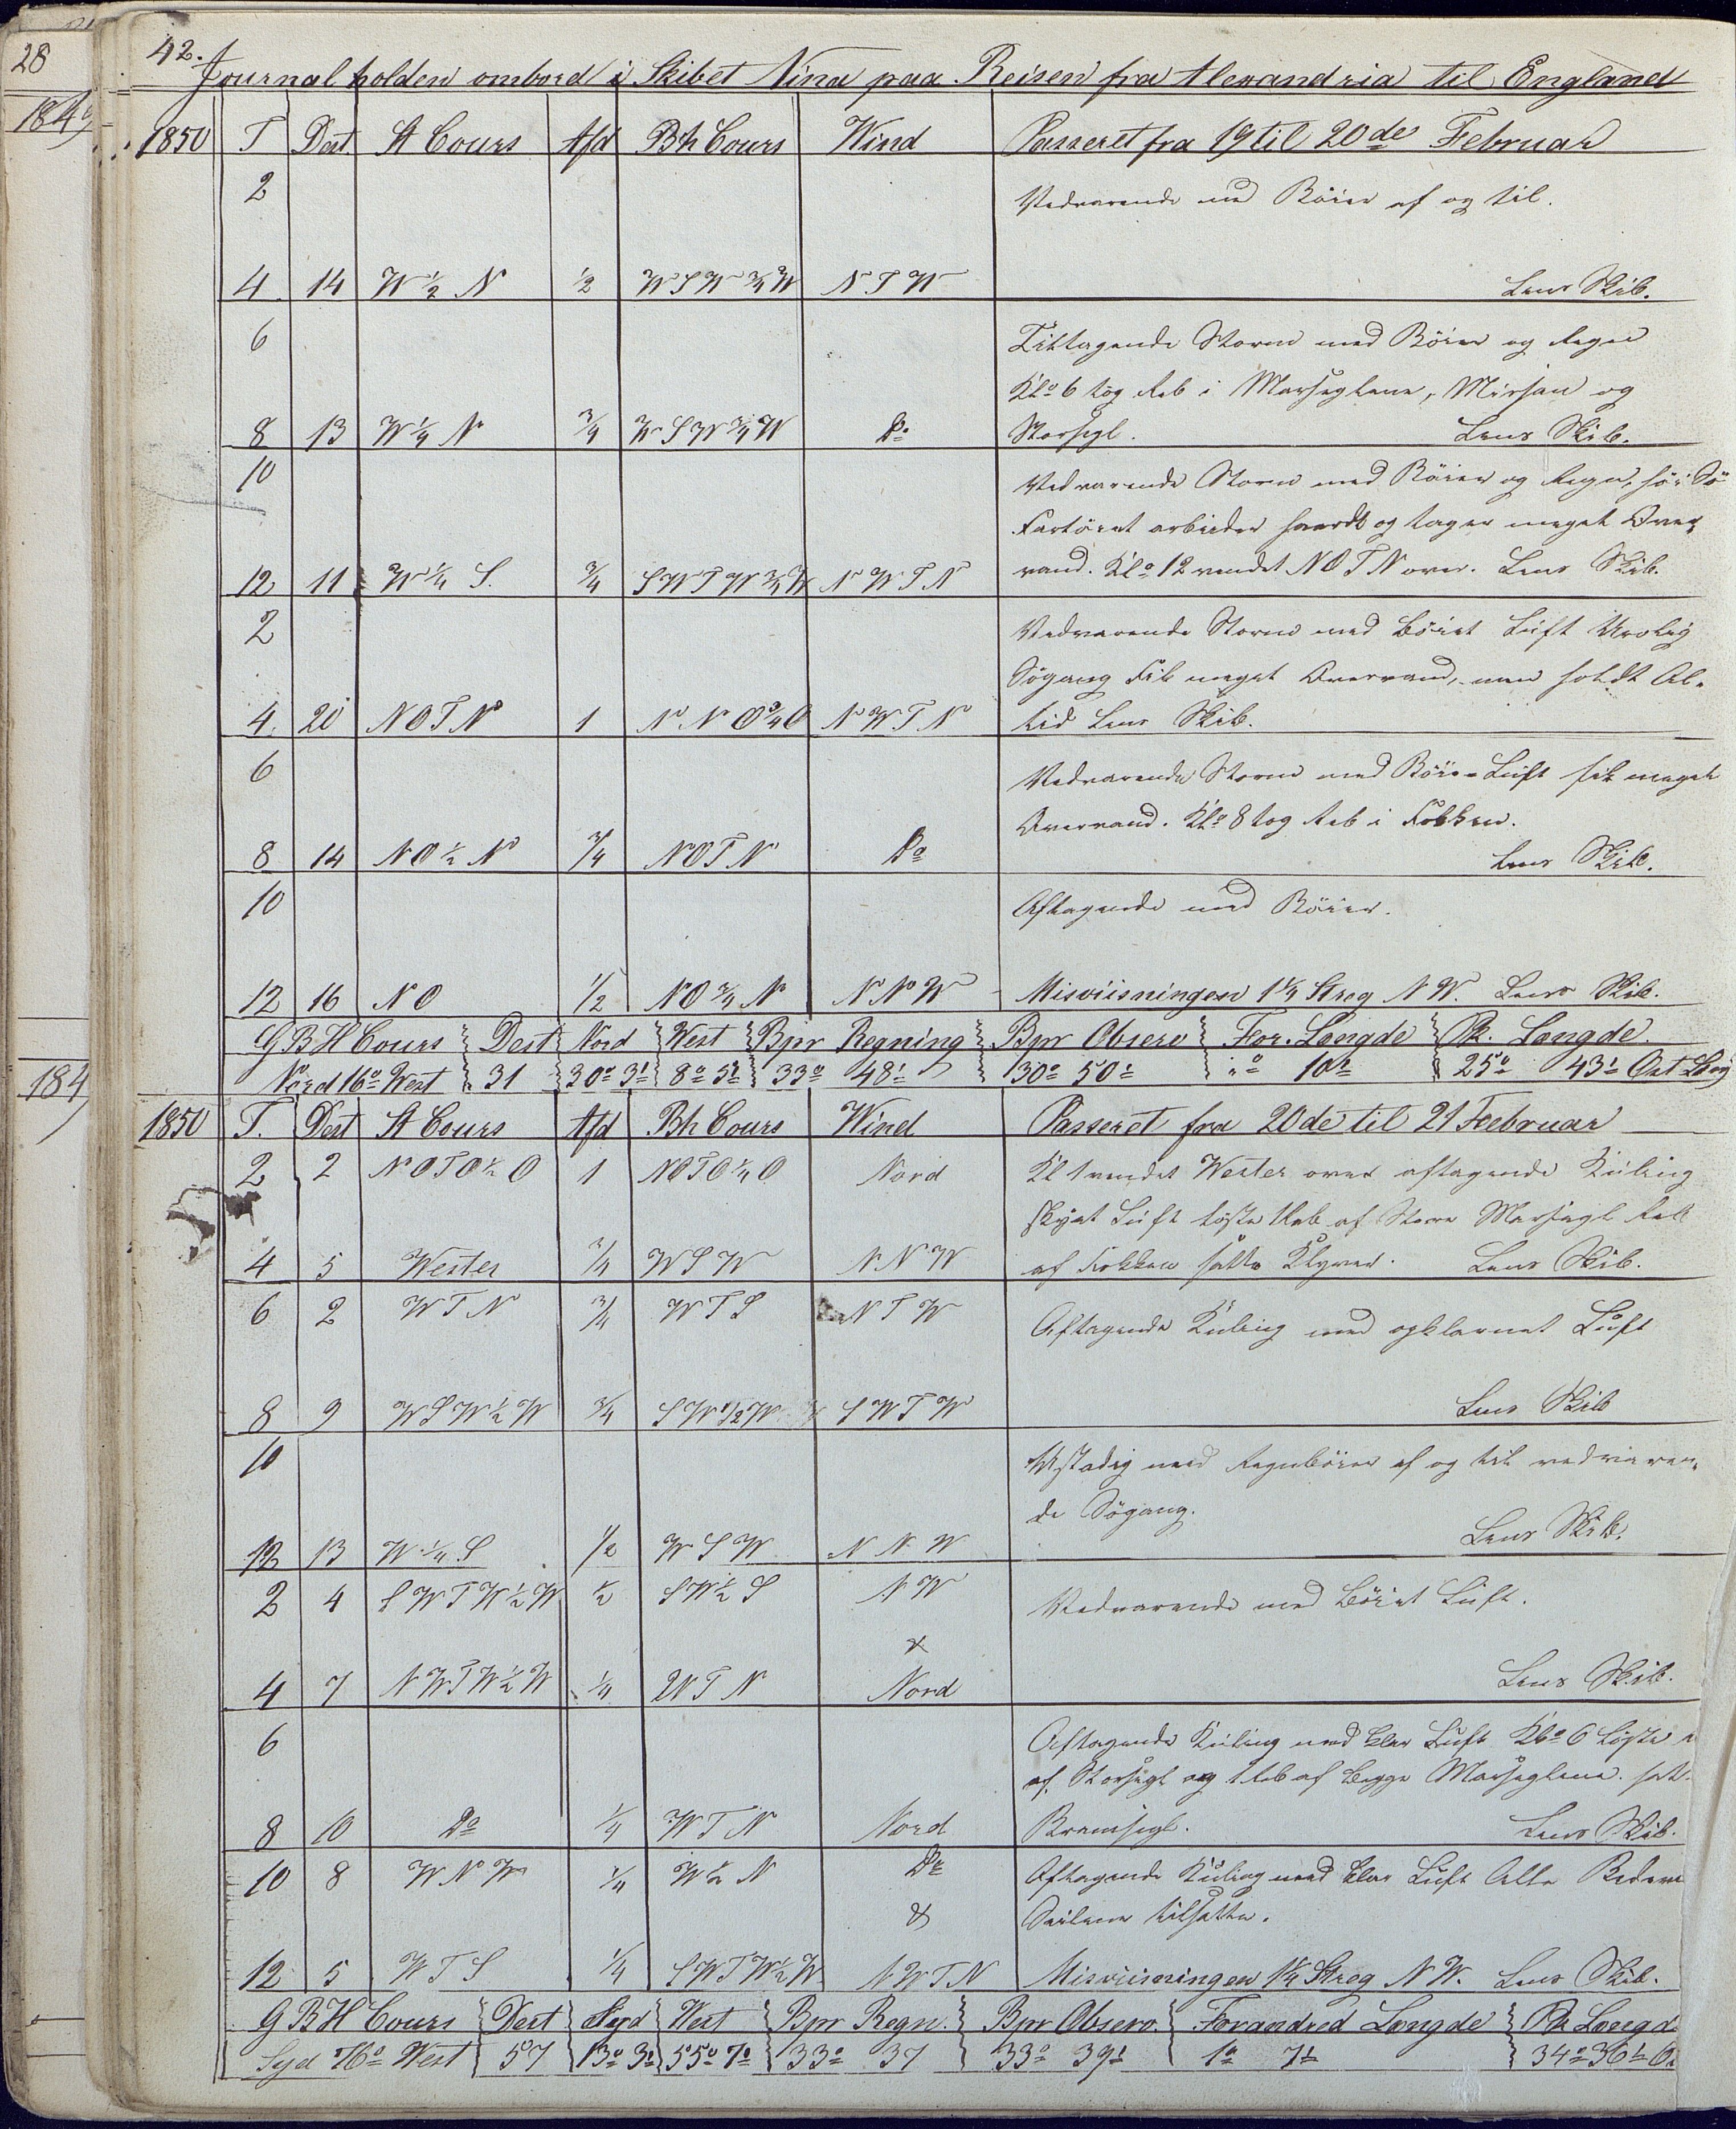 28
1849
184
42.
Journal holden ombord i Skibet Nina paa Reisen fra Alexandria til England
1850 T Dist. St Cours Afd Bh Cours Wind Passeret fra 19 til 20de Februar
2 Vedvarende med Böier af og til.
4 14 W 1/2 N 1/2 WSW 3/4 W NTW Lens Skib.
6 Tiltagende Storm med Böier og Regn
Klo 6 tog Reb i Marseglene, Mersan og
8 13 W 1/4 N 3/4 WSW 3/4 W Do Storsegl. Lens Skib.
10 Vedvarende Storm med Böier og Regn, höi Sö
Fartöiet arbeider haardt og tager meget Over,
12 11 W 1/4 S. 3/4 SWTW 3/4 W NWTN vand. Klo 12 vendet NOTN over. Lens Skib.
2 Vedvarende Storm med böiet Luft Urolig
Sögang Fik meget Overvand, men holdt Al-
4 20 NOTN 1 NNO 3/4 O NWTN tid Lens Skib.
6 Vedvarende Storm med Böie-Luft fik meget
Overvand. Klo 8 tog Reb i Fokken.
8 14 NO 1/2 N 3/4 NOTN Do Lens Skib.
10 Aftagende med Böier.
12 16 NO 1/2 NO 3/4 N NNW Misviisningen 1 1/4 Streg NW. Lens Skib.
GBH Cours Dest Nord West Bpr Regning Bpr Observ For. Længde Pk. Længde.
Nord 16o West 31 30o 3' 8o 5' 33o 48' 30o 50' "o 10' 25o 43' Ost Lhig
1850 T. Dist St Cours Afd Bh Cours Wind Passeret fra 20de til 21 Feebruar
2 2 NOTO 1/2 O 1 NOTO 1/4 O Nord Kl 1 vendet Wester over aftagende Kuling
skyet Luft löste 1 Reb af Store Mersegl Reb
4 5 Wester 3/4 WSW NNW af Fokken satte Klyver. Lens Skib.
6 2 WTN 3/4 WTS NTW Aftagende Kuling med opklarnet Luft
8 9 WSW 1/2 W 3/4 SW 1/2 W SWTW Lens Skib
10 Ustadig med Regnböier af og til vedvaren,
de Sögang.
12 13 W 1/4 S 1/2 WSW NNW Lens Skib.
2 4 SWTW 1/2 W 1/2 SW 1/2 S NW Vedvarende med böiet Luft.
&
4 7 NWTW 1/2 W 1/4 WTN Nord Lens Skib.
6 Aftagende Kuling med klar Luft Klo 6 Löste
af Storsegl og 1 Reb af begge Marseglene. sat-
8 10 Do 1/4 WTN Nord Bramsegl. Lens Skib.
10 8 WNW 1/4 W 1/2 N Do Aftagende Kuling med klar Luft Alle
& Seilene tilsatte.
12 5 WTS 1/4 SWTW 1/2 W NWTN Misviisningen 1 1/4 Streg NW. Lens Skib.
GBH Cours Dest Syd West Bpr Regn. Bpr Observ. Forandred Længde Pk Længd
Syd 76o West 57 13o 3' 55o 7' 33o 37 33o 39' 1o 7' 34o 36' O.